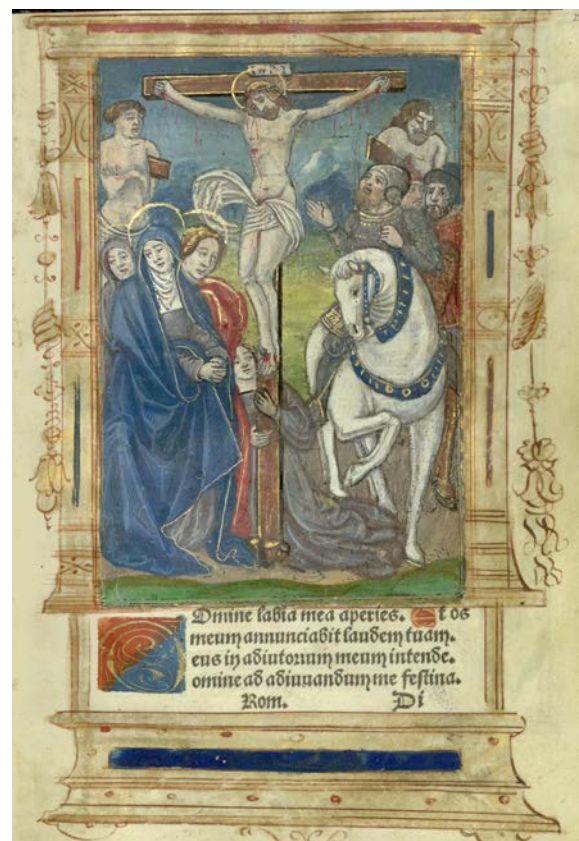 Dmine labia mea aperies. Et os
meum annunciabit laudem tuam.
eus in adiutorium meum intende.
omine ad adiuvandum me festina.
Rom. Di